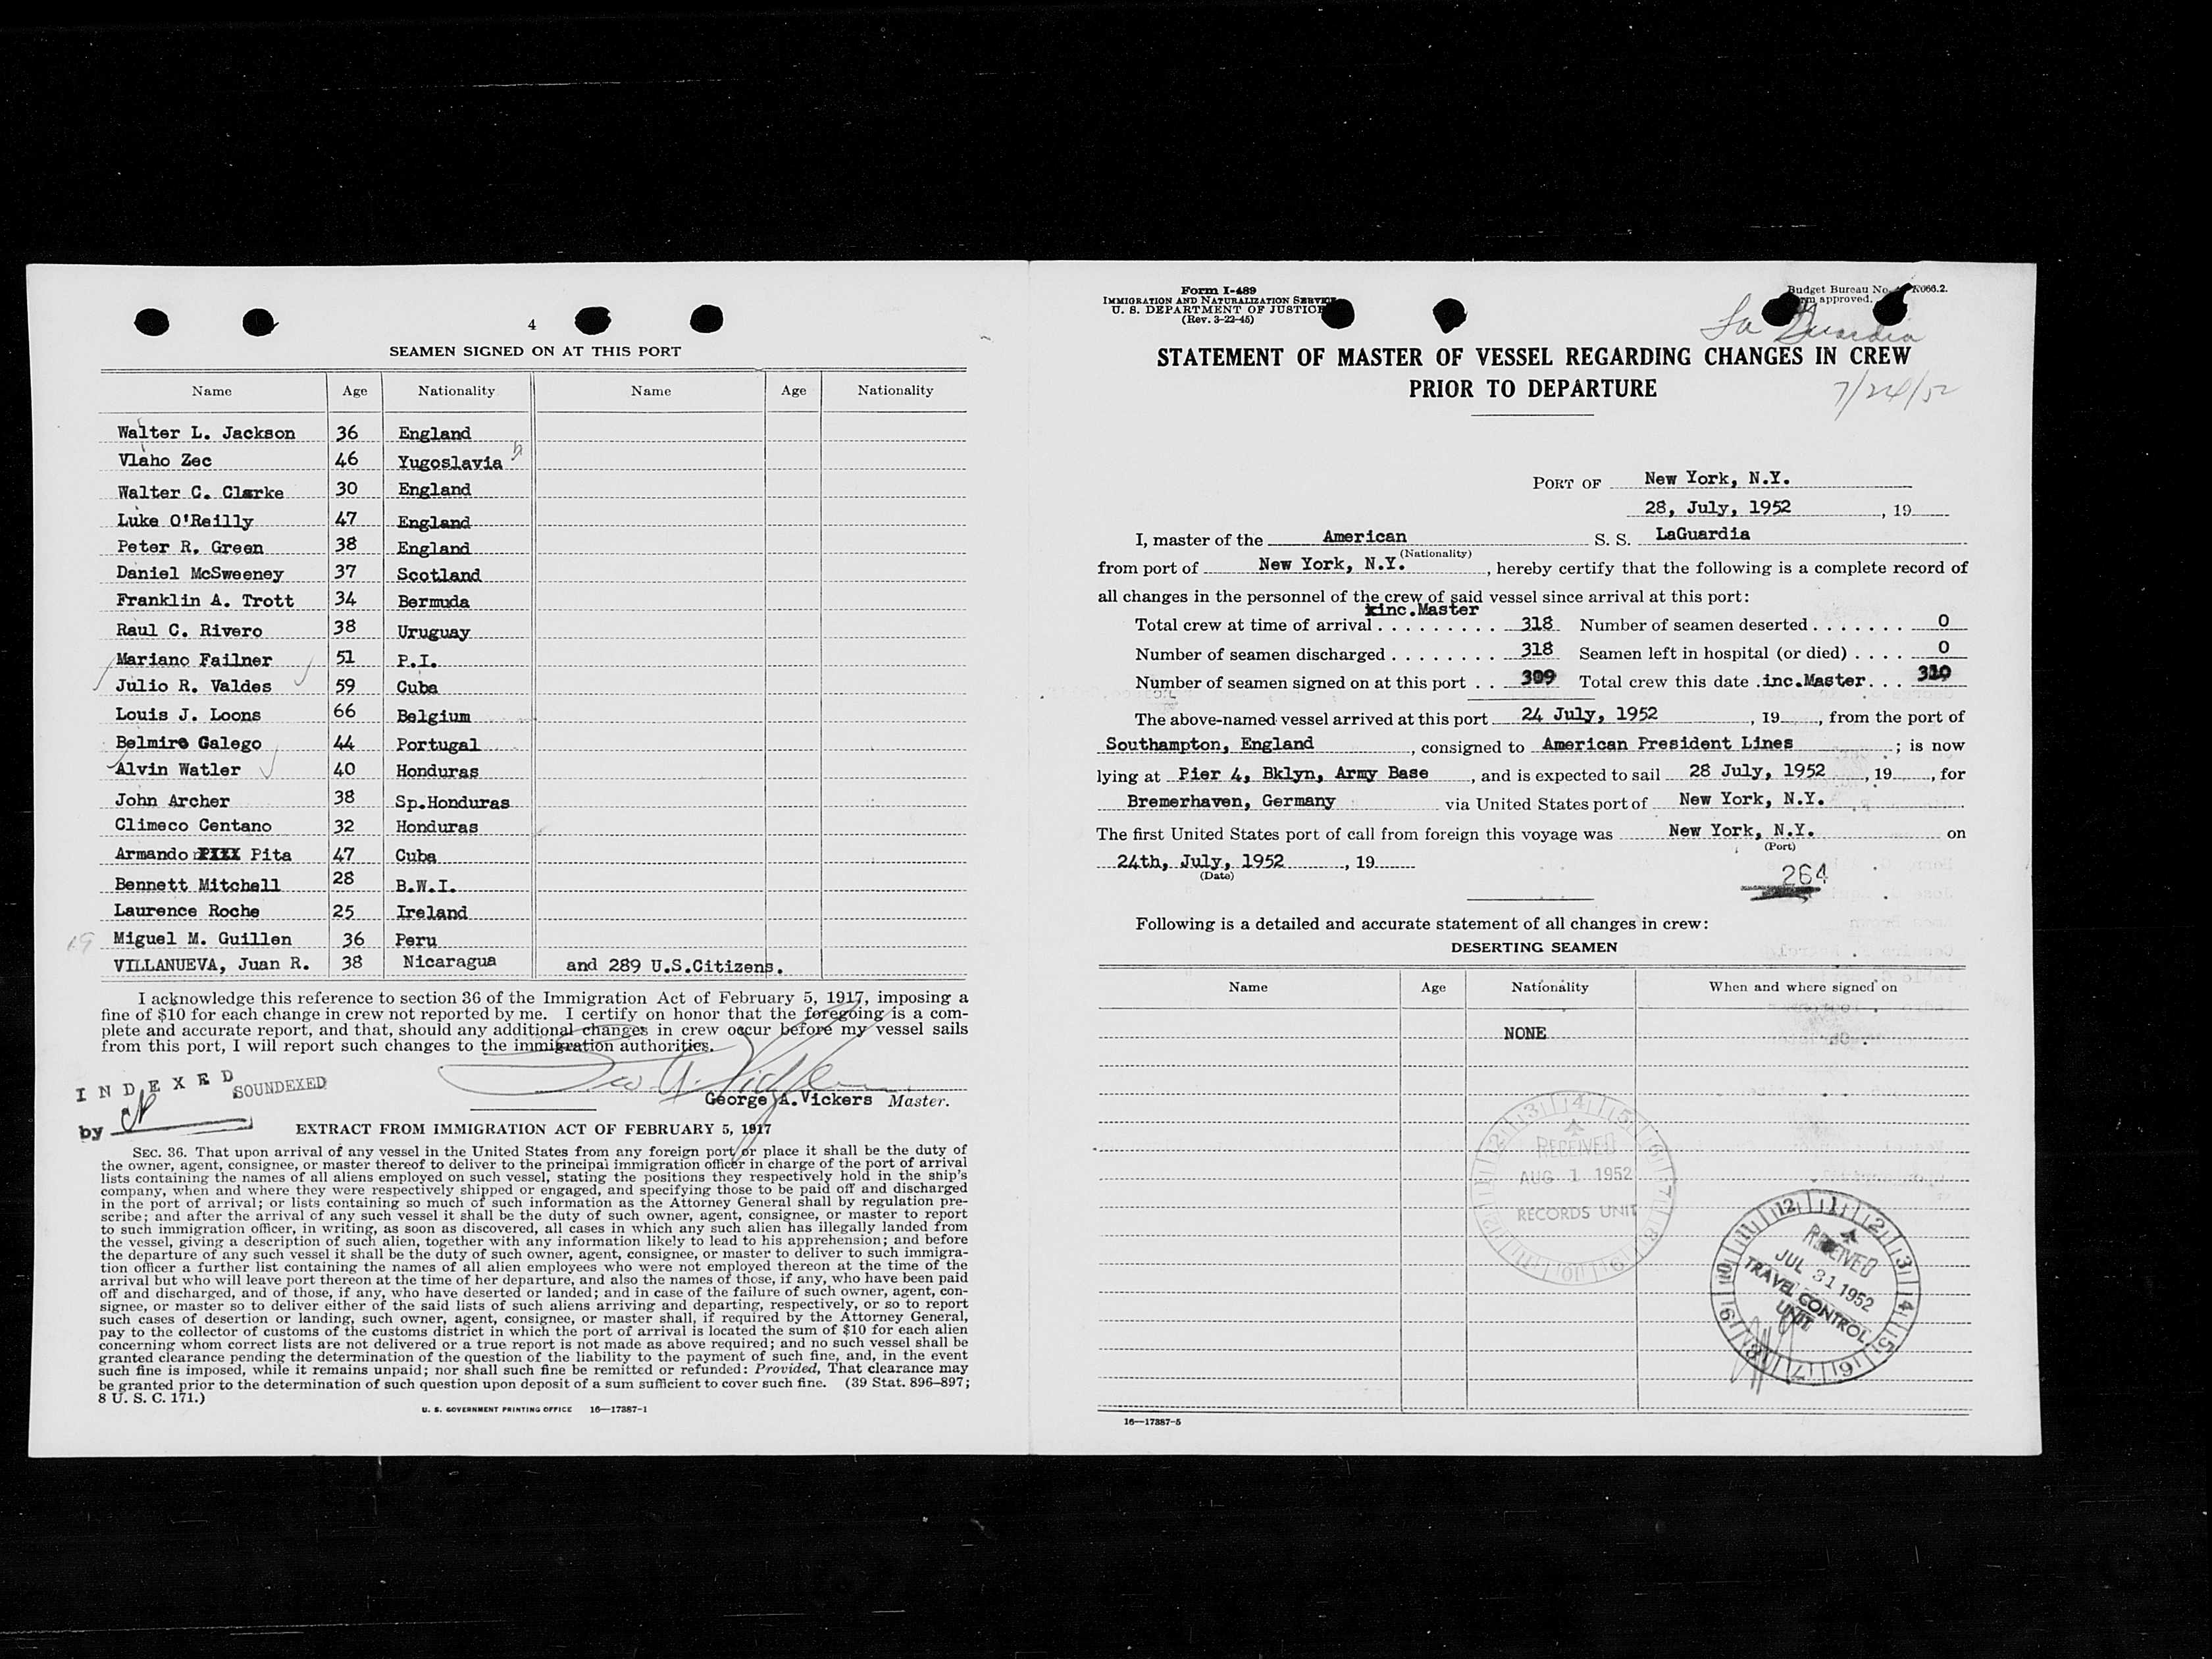 4
SEAMEN SIGNED ON AT THIS PORT
Name Age Nationality Name Age Nationality
Walter L. Jackson 36 England
Vlaho Zec 46 Yugoslavia
Walter C. Clarke 30 England
Luke O'Reilly 47 England
Peter R. Green 38 England
Daniel McSweeney 37 Scotland
Franklin A. Trott 34 Bermuda
Raul C. Rivero 38 Uruguay
Mariano Failner 51 P.I.
Julio R. Valdes 59 Cuba
Louis J. Loons 66 Belgium
Belmiro Galego 44 Portugal
Alvin Watler 40 Honduras
John Archer 38 Sp.Honduras
Climeco Centano 32 Honduras
Armando Pita 47 Cuba
Bennett Mitchell 28 B.W.I.
Laurence Roche 25 Ireland
19 Miguel M. Guillen 36 Peru
VILLANUEVA, Juan R. 38 Nicaragua and 289 U.S.Citizens.
I acknowledge this reference to section 36 of the Immigration Act of February 5, 1917, imposing a
fine of $10 for each change in crew not reported by me. I certify on honor that the foregoing is a com-
plete and accurate report, and that, should any additional changes in crew occur before my vessel sails
from this port, I will report such changes to the immigration authorities.
Geo A. Vickers
George A. Vickers Master.
INDEXED
SOUNDEXED
by
EXTRACT FROM IMMIGRATION ACT OF FEBRUARY 5, 1917
SEC. 36. That upon arrival of any vessel in the United States from any foreign port or place it shall be the duty of
the owner, agent, consignee, or master thereof to deliver to the principal immigration officer in charge of the port of arrival
lists containing the names of all aliens employed on such vessel, stating the positions they respectively hold in the ship's
company, when and where they were respectively shipped or engaged, and specifying those to be paid off and discharged
in the port of arrival; or lists containing so much of such information as the Attorney General shall by regulation pre-
scribe; and after the arrival of any such vessel it shall be the duty of such owner, agent, consignee, or master to report
to such immigration officer, in writing, as soon as discovered, all cases in which any such alien has illegally landed from
the vessel, giving a description of such alien, together with any information likely to lead to his apprehension; and before
the departure of any such vessel it shall be the duty of such owner, agent, consignee, or master to deliver to such immigra-
tion officer a further list containing the names of all alien employees who were not employed thereon at the time of the
arrival but who will leave port thereon at the time of her departure, and also the names of those, if any, who have been paid
off and discharged, and of those, if any, who have deserted or landed; and in case of the failure of such owner, agent, con-
signee, or master so to deliver either of the said lists of such aliens arriving and departing, respectively, or so to report
such cases of desertion or landing, such owner, agent, consignee, or master shall, if required by the Attorney General,
pay to the collector of customs of the customs district in which the port of arrival is located the sum of $10 for each alien
concerning whom correct lists are not delivered or a true report is not made as above required; and no such vessel shall be
granted clearance pending the determination of the question of the liability to the payment of such fine, and, in the event
such fine is imposed, while it remains unpaid; nor shall such fine be remitted or refunded: Provided, That clearance may
be granted prior to the determination of such question upon deposit of a sum sufficient to cover such fine. (39 Stat. 896–897;
8 U. S. C. 171.)
U. S. GOVERNMENT PRINTING OFFICE 16—17387-1
Form I-489
IMMIGRATION AND NATURALIZATION SERVICE
U. S. DEPARTMENT OF JUSTICE
(Rev. 3-22-45)
Budget Bureau No. R066.2.
approved.
La Guardia
STATEMENT OF MASTER OF VESSEL REGARDING CHANGES IN CREW
PRIOR TO DEPARTURE
7/24/52
PORT OF New York, N.Y.
28, July, 1952, 19
I, master of the American S. S. LaGuardia
(Nationality)
from port of New York, N.Y., hereby certify that the following is a complete record of
all changes in the personnel of the crew of said vessel since arrival at this port:
inc.Master
Total crew at time of arrival 318 Number of seamen deserted 0
Number of seamen discharged 318 Seamen left in hospital (or died) 0
Number of seamen signed on at this port 309 Total crew this date inc.Master 310
The above-named vessel arrived at this port 24 July, 1952, 19, from the port of
Southampton, England, consigned to American President Lines; is now
lying at Pier 4, Bklyn, Army Base, and is expected to sail 28 July, 1952, 19, for
Bremerhaven, Germany via United States port of New York, N.Y.
The first United States port of call from foreign this voyage was New York, N.Y. on
(Port)
24th, July, 1952, 19
(Date)
264
Following is a detailed and accurate statement of all changes in crew:
DESERTING SEAMEN
Name Age Nationality When and where signed on
NONE
RECEIVED
AUG 1 1952
RECORDS UNIT
RECEIVED
JUL 31 1952
TRAVEL CONTROL
UNIT
16—17387-5